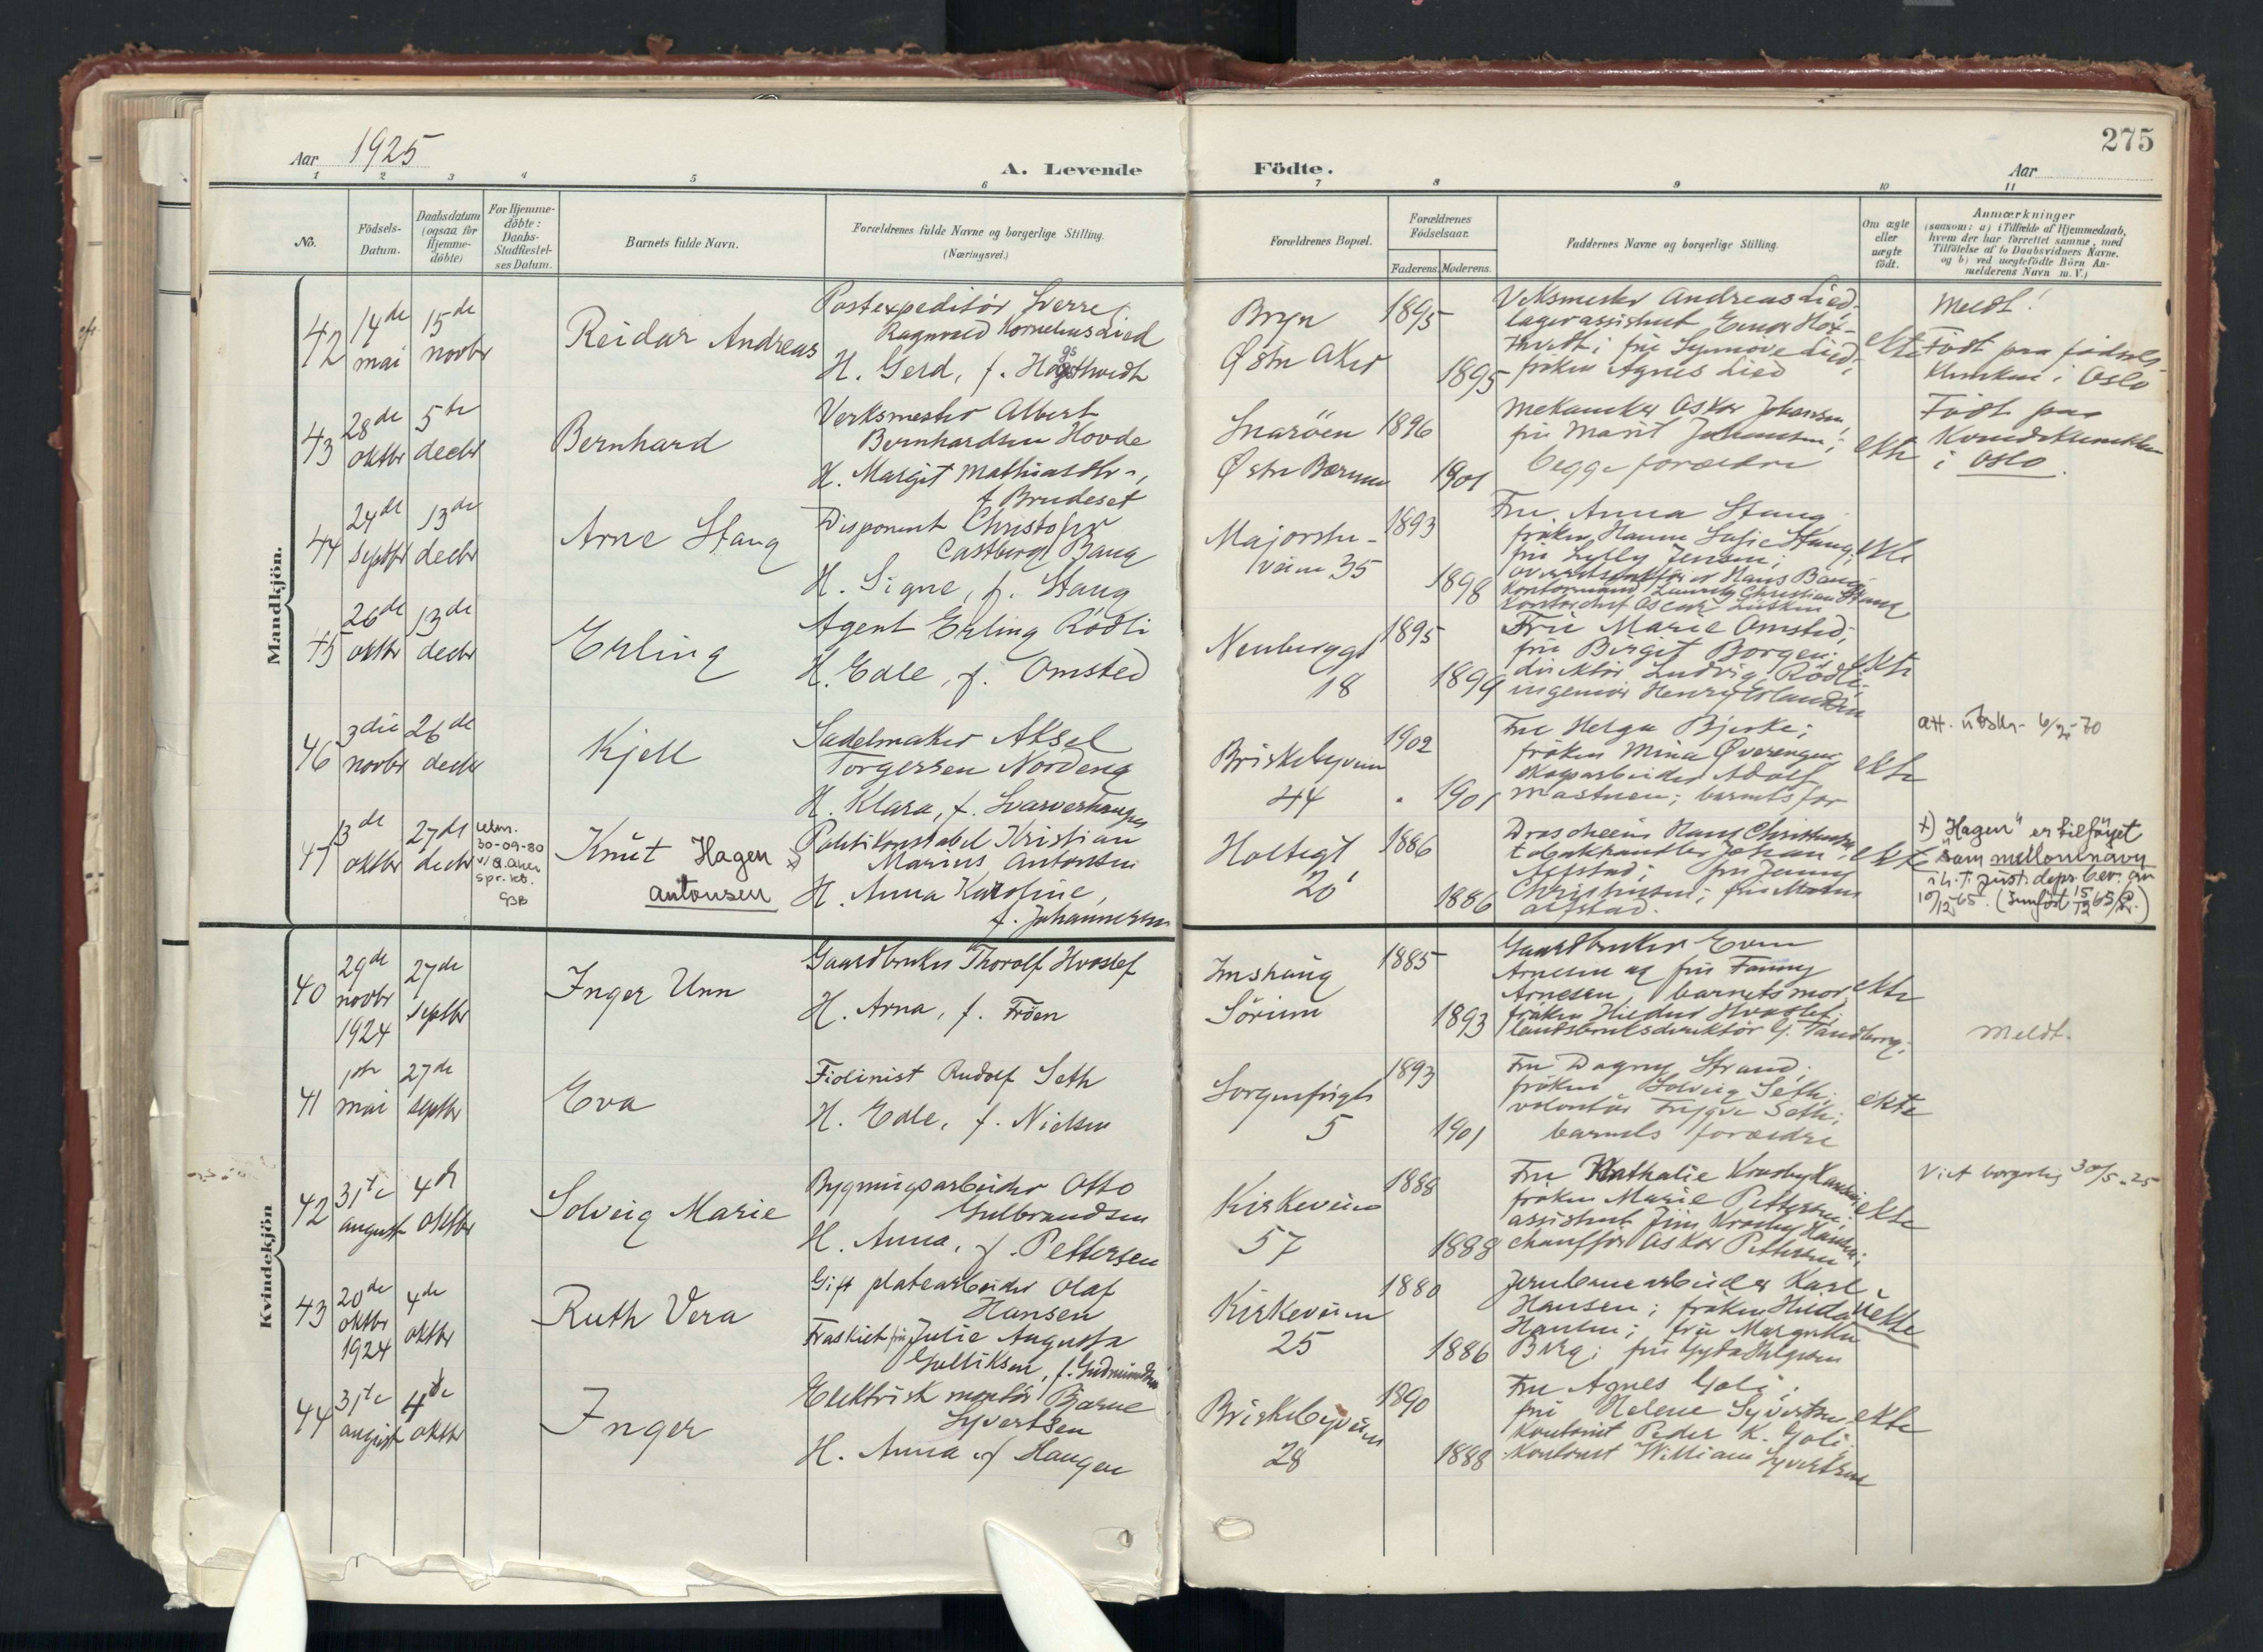 275
Aar 1925
A. Levende
Födte.
Aar
1 2 3 4 5 6 7 8 9 10 11
No.
Födsels-
Datum.
Daabsdatum
(ogsaa for
Hjemme-
döbte)
For Hjemme-
döbte:
Daabs-
Stadfæstel-
ses Datum.
Barnets fulde Navn.
Forældrenes fulde Navne og borgerlige Stilling.
(Næringsvei.)
Forældrenes Bopæl.
Forældrenes
Födselsaar.
Faderens.
Moderens.
Faddernes Navne og borgerlige Stilling.
Om ægte
eller
uægte
födt.
Anmærkninger
(saasom: a) i Tilfælde af Hjemmedaab,
hvem der har forrettet samme, med
Tilföielse af to Daabsvidners Navne.
og b) ved uægtefödte Börn An-
melderens Navn m. V.)
Mandkjön.
42
14de
mai
15de
novbr
Reidar Andreas
Postexpeditör Sverre
Ragnvald Kornelius Lied
H. Gerd, f. Høgsthvedt
Bryn
Østre Aker
1895
1895
Verksmester Andreas Lied;
lagerassistent Einar Høx-
thvedt; frü Synnøve Lied;
fröken Agnes Lied
ekte
Meldt!
Födt paa födsels-
klinikken i Oslo
43
28de
oktbr
5te
decbr
Bernhard
Verksmester Albert
Bernhardsen Hovde
H. Margit Mathiasdtr,
f. Brudeset
Snaröen
Østre Bærum
1896
1901
Mekaniker Oskar Johansen,
frü Marit Johansen;
begge forældre
ekte
Födt paa
Kvindeklinikken
i Oslo.
44
24de
septbr
13de
decbr
Arne Stang
Disponent Christofer
Castberg Bang
H. Signe, f. Stang
Majorstu-
veien 35
1893
1898
Frü Anna Stang
fröken Hanna Sofie Stang;
frü Lylly Jensen;
Hans Bang
Lauritz Christian Stang,
Kontorchef Oscar
ekte
45
26de
oktbr
13de
decbr
Erling
Agent Erling Rödli
H. Edle, f. Omsted
Neuberggt
18
1895
1899
Frü Marie Omsted;
frü Birgit Borgen;
direktör Ludvig Rödli;
ingeniör Henry Erlandsen
ekte
46
3die
novbr
26de
decbr
Kjell
Sadelmaker Aksel
Torgersen Nordeng
H. Klara, f. Svarverhaugen
Briskebyveien
44
1902
1901
Frü Helga Bjerke;
fröken Mina Øverengen;
skogsarbeider Adolf
Mastuen; barnets far
ekte
att. utskr. 6/2-70
47
13de
oktbr
27de
decbr
utm.
30-09-80
v/ Ø. Aker
spr.kt.
GBB
Knut Hagen x)
Antonsen
Politikonstabel Kristian
Marius Antonsen
H. Anna Karoline,
f. Johannessen
Holtegt
20
1886
1886
Hans Christensen
tobakhandler Johan
Alfstad; frü Jenny
Christensen; frü
Alfstad.
ekte
x) "Hagen" er tilföyet
som mellomnavn
i h. t. Just. deps. bev. av
10/12 65. (innført 15/12 65/
Kvindekjön
40
29de
novbr
1924
27de
septbr
Inger Unn
Gaardbruker Thorolf Hvoslef
H. Arna, f. Fröen
Imshaug
Sörum
1885
1893
Gaardbruker Even
Arnesen og frü Fanny
Arnesen, barnets mor,
fröken Hildur Hvoslef;
landbruksdirektör G. Tandberg;
ekte
Meldt.
41
1ste
mai
27de
septbr
Eva
Fiolinist Rudolf Seth
H. Edle, f. Nielsen
Sorgenfrigt
5
1893
1901
Frü Dagny Strand;
fröken Solveig Seth;
volontör Trygve Seth;
barnets forældre
ekte
42
31te
august
4de
oktbr
Solveig Marie
Bygningsarbeider Otto
Gulbrandsen
H. Anna, f. Pettersen
Kirkeveien
57
1888
1888
Frü Nathalie Krosby Hansen;
fröken Marie Pettersen;
assistent Finn Krosby Hansen;
chauffør Oskar Pettersen
ekte
Viet borgerlig 30/5-25
43
20de
oktbr
1924
4de
oktbr
Ruth Vera
Gift platearbeider Olaf
Hansen
Fraskilt frü Julie Augusta
Gulliksen, f. Gudmundsen
Kirkeveien
25
1880
1886
Jernbanearbeider Karl
Hansen; fröken Hilda
Hansen; frü Margrethe
Berg; frü Gyda Helgesen
uekte
44
31te
august
4de
oktbr
Inger
Elektrisk montör Bjarne
Syvertsen
H. Anna f. Haugen
Briskebyveien
28
1890
1888
Frü Agnes Goli;
frü Helene Syvertsen
Kontorist Peder K. Goli;
Kontorist William Syvertsen
ekte